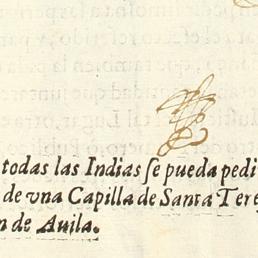 todas las Indias se pueda pedi
de vna Capilla de Santa Tere
n de Auila.